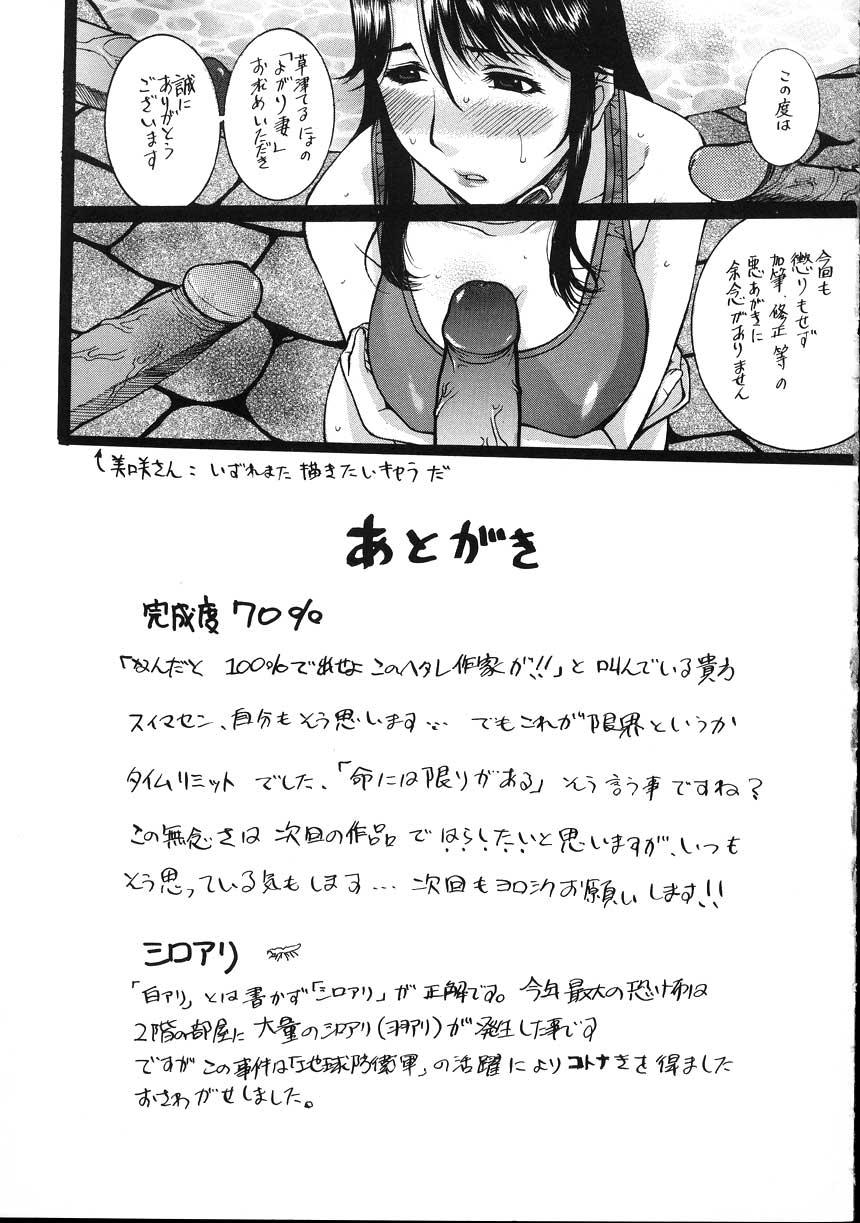 この度は
草津てるにょの
「よがり妻」
お求めいただき
誠に
ありがとう
ございます
今回も
懲りもせず
加筆、修正等の
悪あがきに
余念がありません
美咲さん:いずれまた描きたいキャラだ
あとがき
完成度70%
「なんだと 100%で出せよこのヘタレ作家が!!」と叫んでいる貴方
スイマセン、自分もそう思います... でもこれが限界というか
タイムリミット でした、「命には限りがある」そう言う事ですね?
この無念さは 次回の作品 で はらしたいと思いますが、いつも
そう思っている気もします... 次回もヨロシクお願いします!!
シロアリ
「白アリ」とは書かず「シロアリ」が正解です。今年最大の恐怖は
2階の部屋に 大量のシロアリ(ヨヨアリ)が発生した事です
ですがこの事件は「地球防衛軍」の活躍によりコトナきを得ました
おさわがせしました。